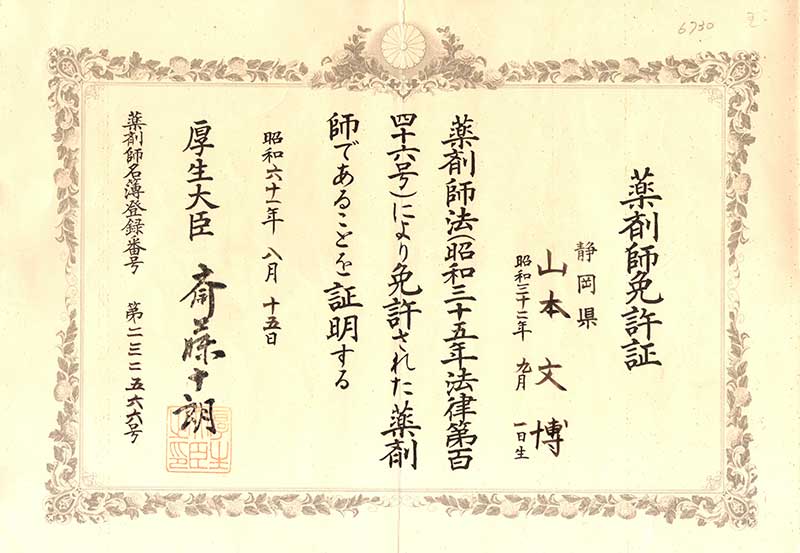 6730
薬剤師免許証
静岡県
山本文博
昭和三十二年 九月 一日生
薬剤師法(昭和三十五年法律第百
四十六号)により免許された薬剤
師であることを証明する
昭和六十一年 八月 十五日
厚生大臣 斎藤十朗
薬剤師名簿登録番号 第二三二五六六号